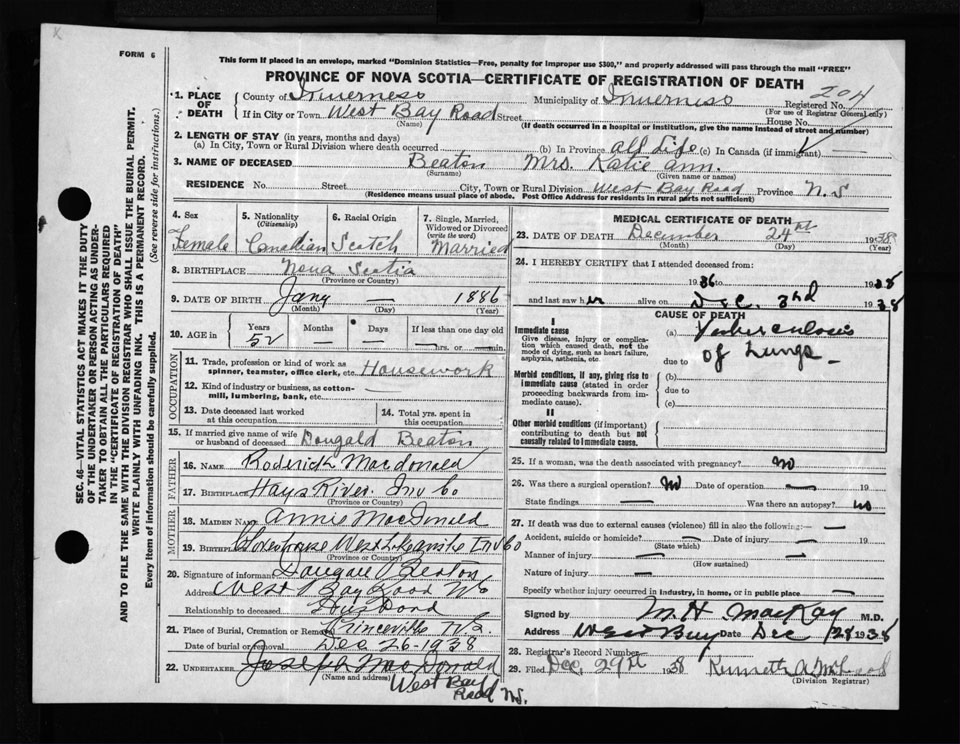 X
FORM 6
This form if placed in an envelope, marked "Dominion Statistics—Free, penalty for improper use $300," and properly addressed will pass through the mail "FREE"
PROVINCE OF NOVA SCOTIA—CERTIFICATE OF REGISTRATION OF DEATH
1. PLACE OF DEATH
County of Inverness Municipality of Inverness Registered No. 204
(For use of Registrar General only)
If in City or Town West Bay Road Street House No.
(Name) (If death occurred in a hospital or institution, give the name instead of street and number)
2. LENGTH OF STAY (in years, months and days)
(a) In City, Town or Rural Division where death occurred (b) In Province All Life (c) In Canada (if immigrant) —
3. NAME OF DECEASED Beaton Mrs. Katie Ann.
(Surname) (Given name or names)
RESIDENCE No. Street City, Town or Rural Division West Bay Road Province N.S
(Residence means usual place of abode. Post Office Address for residents in rural parts not sufficient)
4. Sex Female
5. Nationality (Citizenship) Canadian
6. Racial Origin Scotch
7. Single, Married, Widowed or Divorced (write the word) Married
8. BIRTHPLACE Nova Scotia
(Province or Country)
9. DATE OF BIRTH Jany — 1886
(Month) (Day) (Year)
10. AGE in Years 52 Months — Days — If less than one day old
hrs. or min.
OCCUPATION
11. Trade, profession or kind of work as spinner, teamster, office clerk, etc. Housework
12. Kind of industry or business, as cotton-mill, lumbering, bank, etc.
13. Date deceased last worked at this occupation
14. Total yrs. spent in this occupation
15. If married give name of wife or husband of deceased Dougald Beaton
FATHER
16. NAME Roderick MacDonald
17. BIRTHPLACE Hays River. Inv Co
(Province or Country)
MOTHER
18. MAIDEN NAME Annie MacDonald
19. BIRTHPLACE Inv Co
(Province or Country)
20. Signature of informant Dougald Beaton
Address West Bay Road NS
Relationship to deceased Husband
21. Place of Burial, Cremation or Removal Princeville N.S.
Date of burial or removal Dec 26-1938
22. UNDERTAKER Joseph MacDonald
(Name and address) West Bay
Road N.S.
MEDICAL CERTIFICATE OF DEATH
23. DATE OF DEATH December 24th 1938
(Month) (Day) (Year)
24. I HEREBY CERTIFY that I attended deceased from:
1936 to 1938
and last saw her alive on Dec. 3rd 1938
CAUSE OF DEATH
I
Immediate cause
Give disease, injury or complication which caused death, not the mode of dying, such as heart failure, asphyxia, asthenia, etc.
(a) Tuberculosis
of Lungs —
due to
Morbid conditions, if any, giving rise to immediate cause (stated in order proceeding backwards from immediate cause).
(b)
due to
(c)
II
Other morbid conditions (if important) contributing to death but not causally related to immediate cause.
25. If a woman, was the death associated with pregnancy? No
26. Was there a surgical operation? No Date of operation — 19
State findings — Was there an autopsy? no
27. If death was due to external causes (violence) fill in also the following:— —
Accident, suicide or homicide? — Date of injury — 19
(State which)
Manner of injury — —
(How sustained)
Nature of injury —
Specify whether injury occurred in industry, in home, or in public place —
Signed by M H MacKay M.D.
Address West Bay Date Dec 28 1938
28. Registrar's Record Number
29. Filed Dec. 29th 1938 Kenneth A McLeod
(Division Registrar)
SEC. 46—VITAL STATISTICS ACT MAKES IT THE DUTY
OF THE UNDERTAKER OR PERSON ACTING AS UNDER-
TAKER TO OBTAIN ALL THE PARTICULARS REQUIRED
IN THE "CERTIFICATE OF REGISTRATION OF DEATH"
AND TO FILE THE SAME WITH THE DIVISION REGISTRAR WHO SHALL ISSUE THE BURIAL PERMIT.
WRITE PLAINLY WITH UNFADING INK. THIS IS A PERMANENT RECORD.
Every item of information should be carefully supplied. (See reverse side for instructions.)